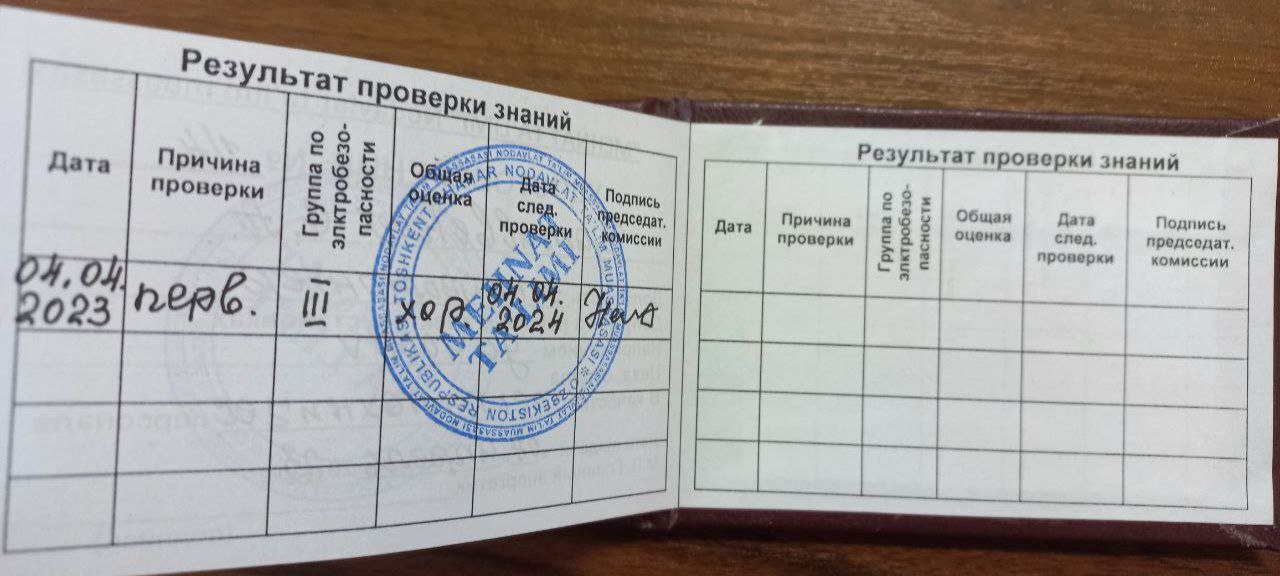 Результат проверки знаний
Дата
Причина
проверки
Группа по
элктробезо-
пасности
Общая
оценка
Дата
след.
проверки
Подпись
председат.
комиссии
04.04.
2023
перв.
III
хор.
04.04.
2024
MEHNAT
TA'LIMI
TOSHKENT SHAHAR NODAVLAT TA'LIM MUASSASASI * O'ZBEKISTON RESPUBLIKASI
Результат проверки знаний
Дата
Причина
проверки
Группа по
элктробезо-
пасности
Общая
оценка
Дата
след.
проверки
Подпись
председат.
комиссии